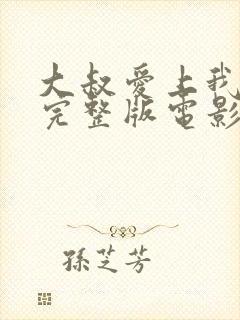 大叔愛上我
完整版電影
孫芝芳